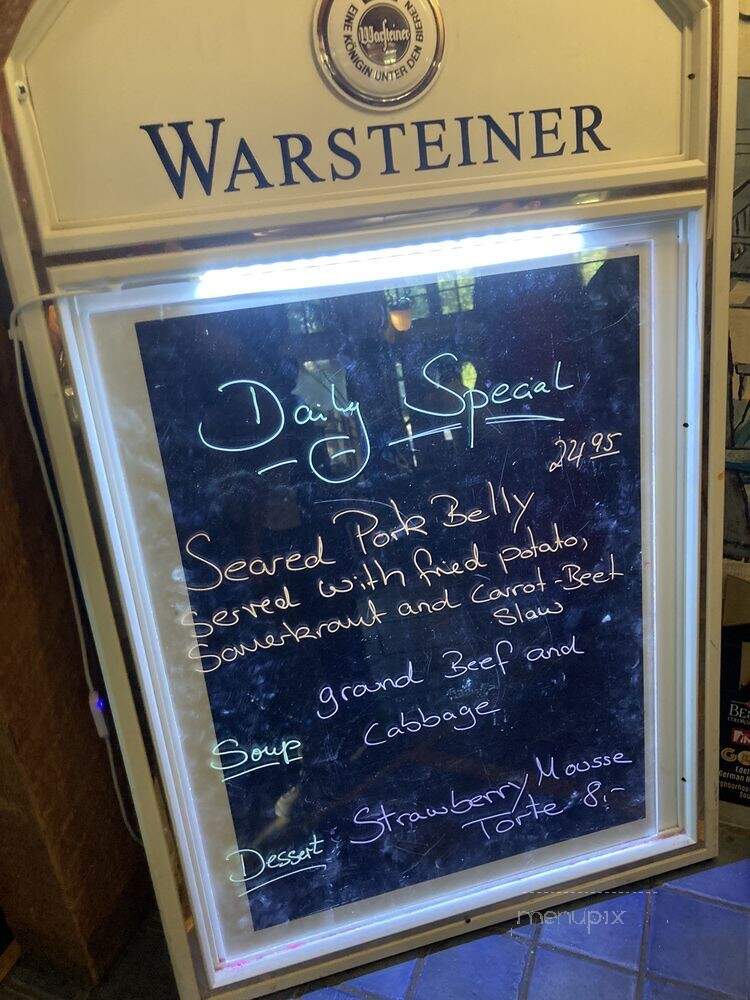 EINE KÖNIGIN UNTER DEN BIEREN
Warsteiner
WARSTEINER
Daily Special
24.95
Seared Pork Belly
Served with fried potato,
Sauerkraut and Carrot-Beet
Slaw
ground Beef and
Soup Cabbage
Strawberry Mousse
Dessert Torte 8,-
menupix